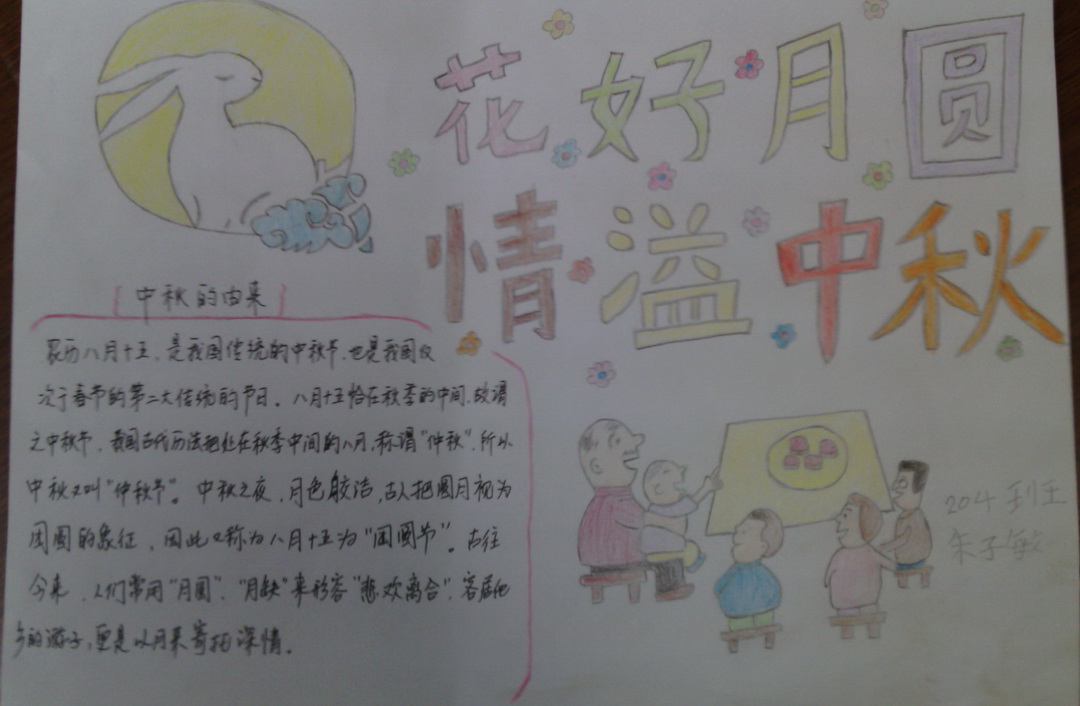 花好月圆
情溢中秋
中秋的由来
农历八月十五，是我国传统的中秋节，也是我国仅
次于春节的第二大传统的节日。八月十五恰在秋季的中间，故谓
之中秋节，我国古代历法把处在秋季中间的八月，称谓"仲秋"，所以
中秋又叫"仲秋节"。中秋之夜，月色皎洁，古人把圆月视为
团圆的象征，因此又称为八月十五为"团圆节"。古往
今来，人们常用"月圆"、"月缺"来形容"悲欢离合"，客居他
乡的游子，更是以月来寄托深情。
204班
朱子敏